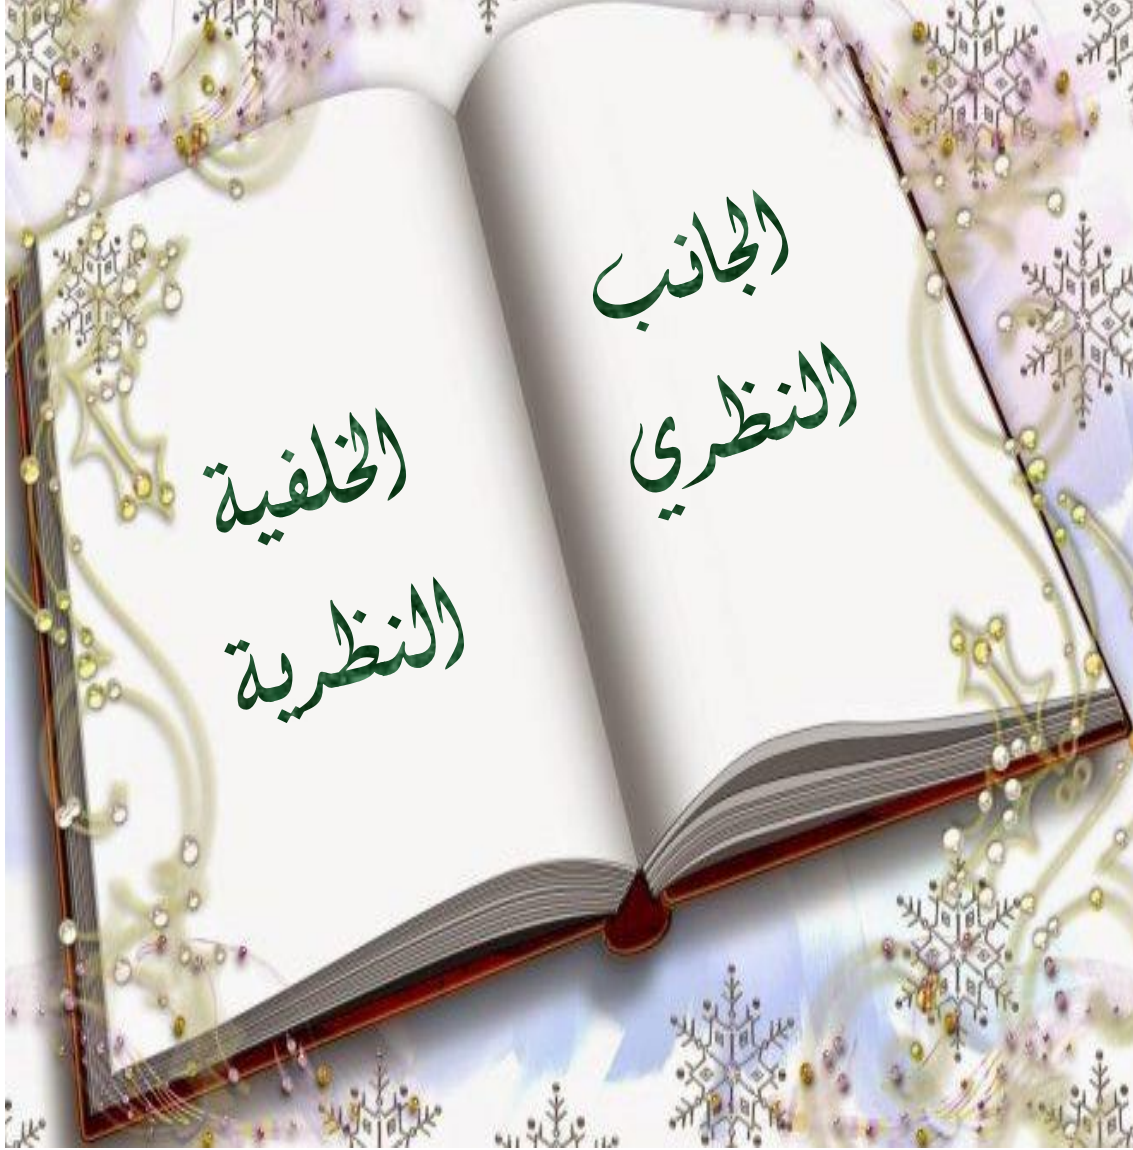 الجانب
النظري
الخلفية
النظرية